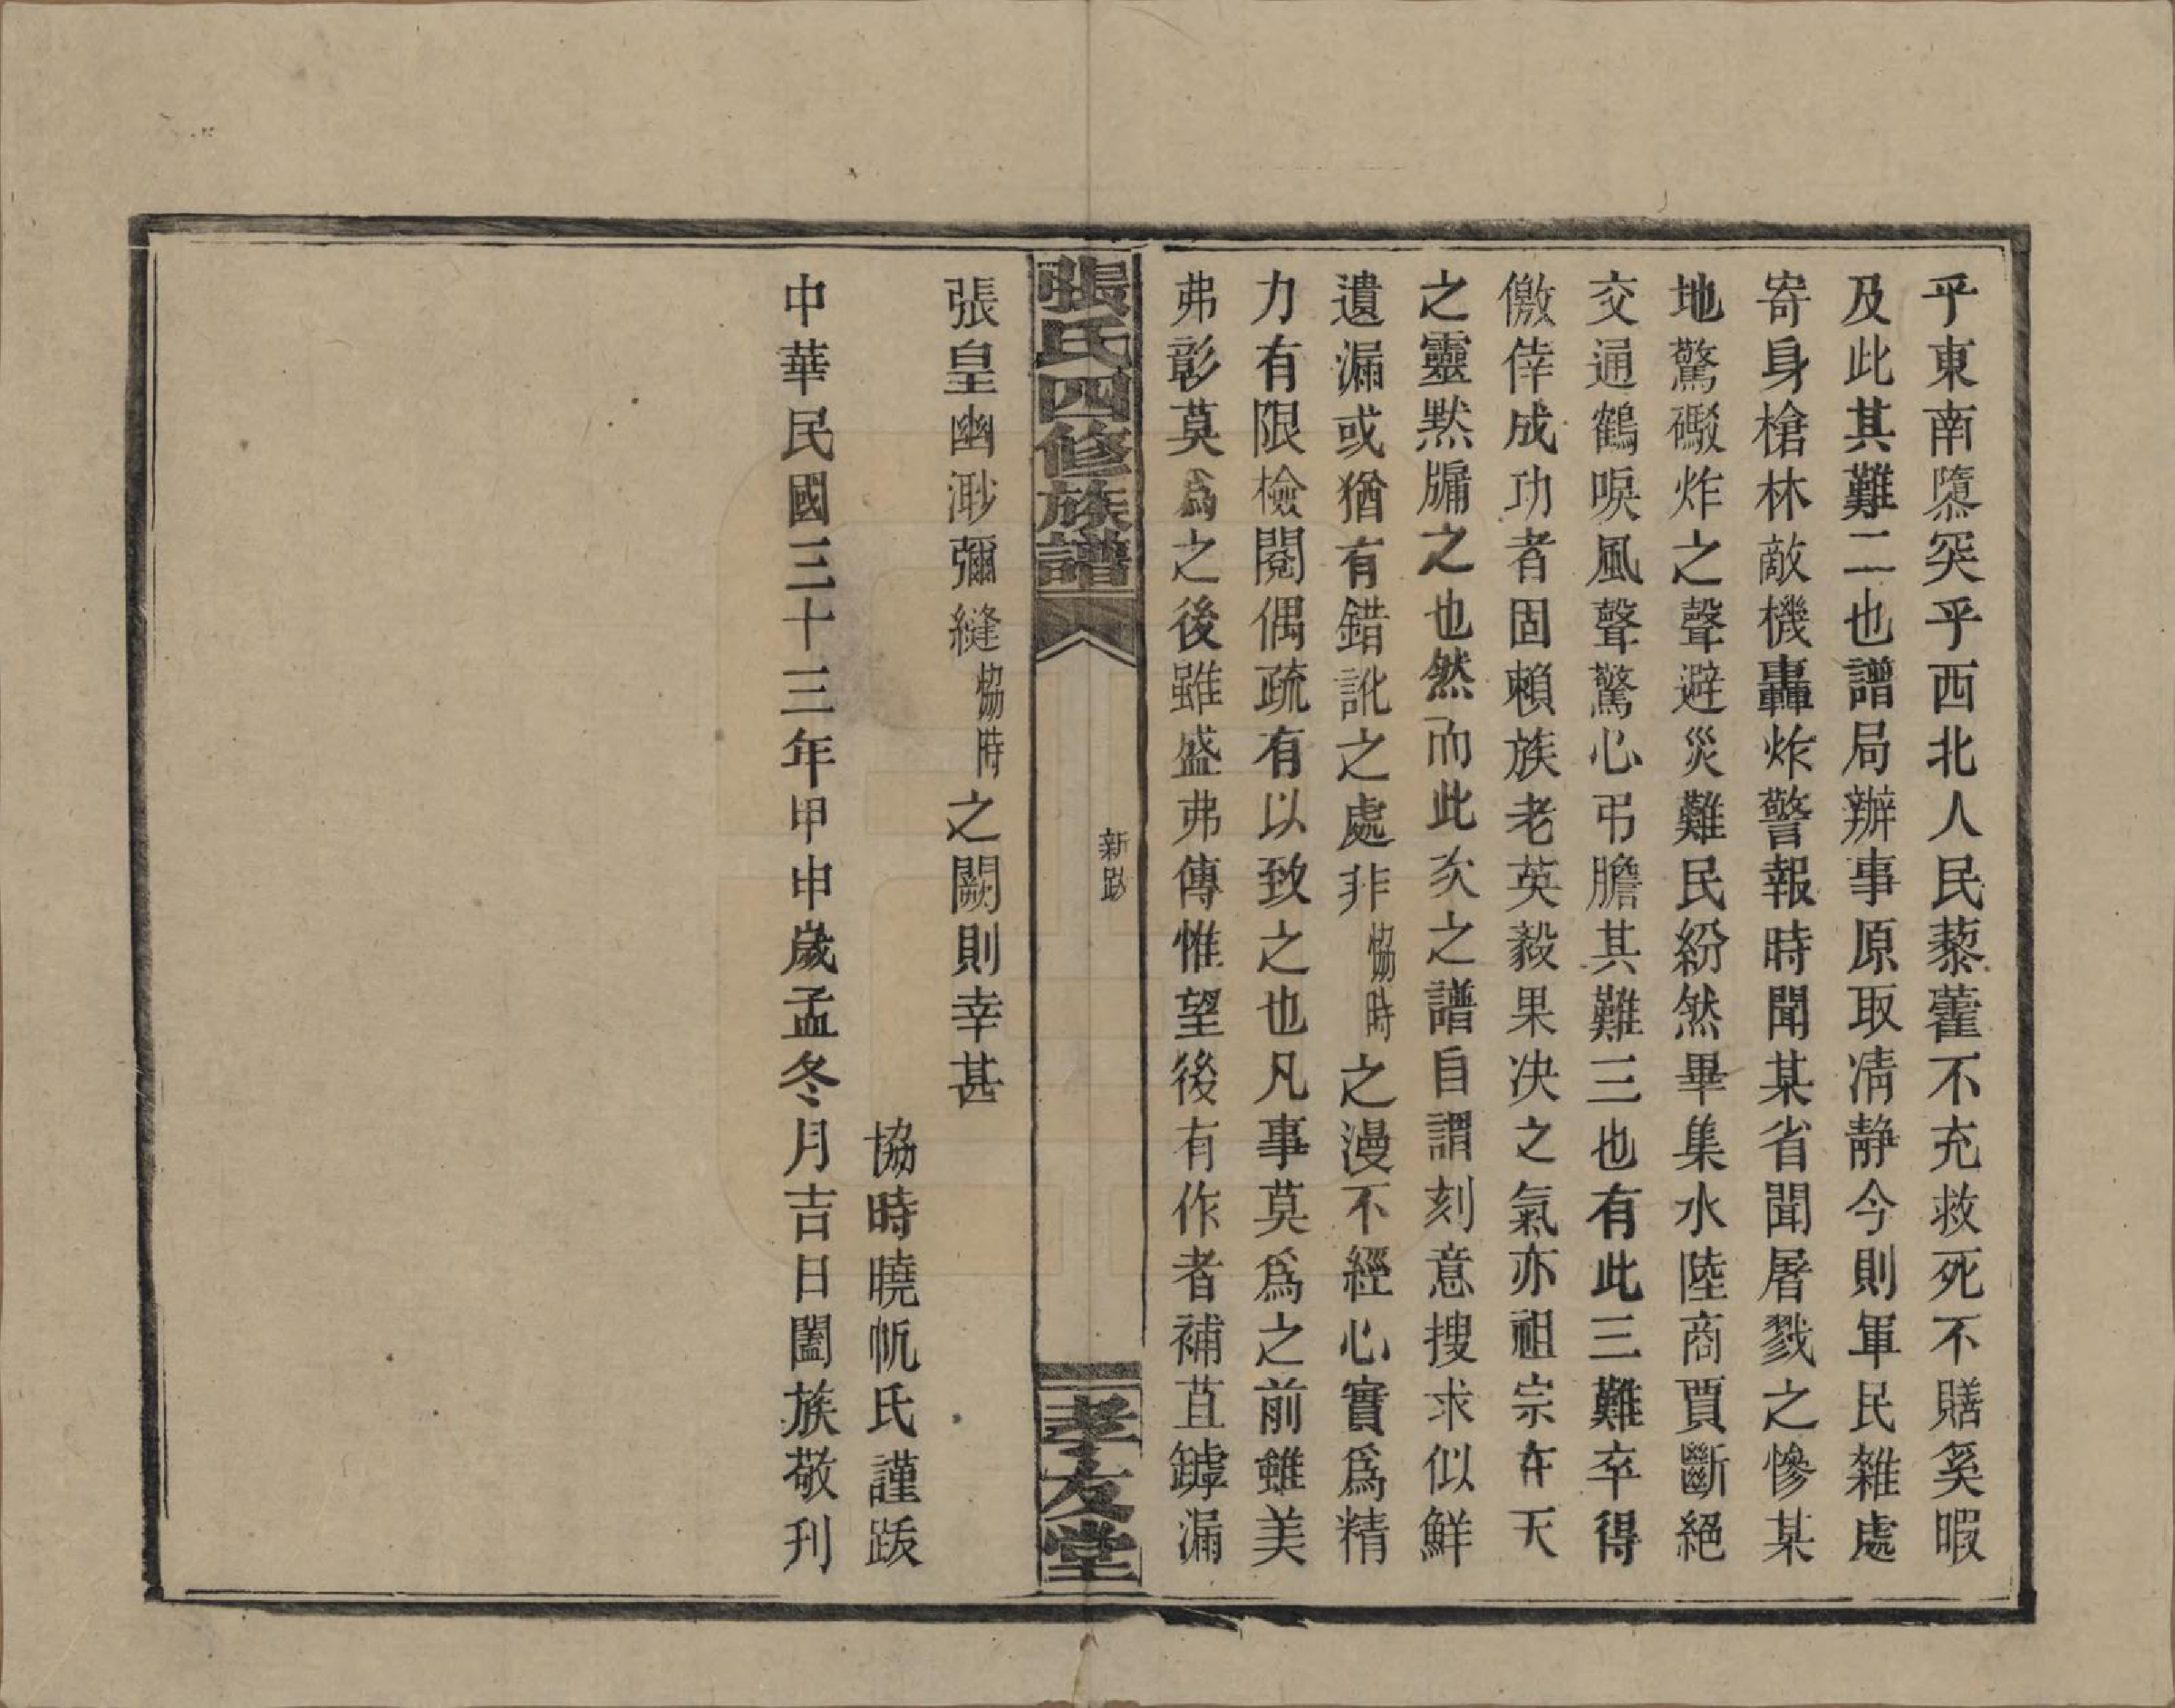 乎東南隳突乎西北人民藜藿不充救死不贍奚暇
及此其難二也譜局辦事原取淸靜今則軍民雜處
寄身槍林敵機轟炸警報時聞某省聞屠戮之慘某
地驚礮炸之聲避災難民紛然畢集水陸商賈斷絕
交通鶴唳風聲驚心弔膽其難三也有此三難卒得
儌倖成功者固賴族老英毅果決之氣亦祖宗在天
之靈默牖之也然而此次之譜自謂刻意搜求似鮮
遺漏或猶有錯訛之處非協時之漫不經心實爲精
力有限檢閱偶疏有以致之也凡事莫爲之前雖美
弗彰莫爲之後雖盛弗傳惟望後有作者補苴罅漏
張氏四修族譜
新跋
孝友堂
張皇幽渺彌縫協時之闕則幸甚
協時曉帆氏謹跋
中華民國三十三年甲申歲孟冬月吉日闔族敬刊